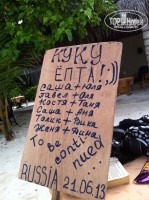 ТОПХОТЕЛС
КУКУ
ЁПТА!;))
Даша+Юля
Павел+Оля
Костя+Таня
Саша+Аня
Толик+Вика
Женя+Янина
To be conti
nued...
RUSSIA 21.06.13